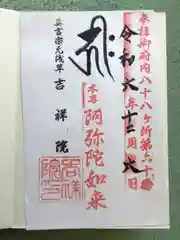 奉拝御府内八十八ヶ所第六十
令和六年十二月六日
本尊
阿弥陀如来
真言宗元浅草
吉祥院
吉祥院印